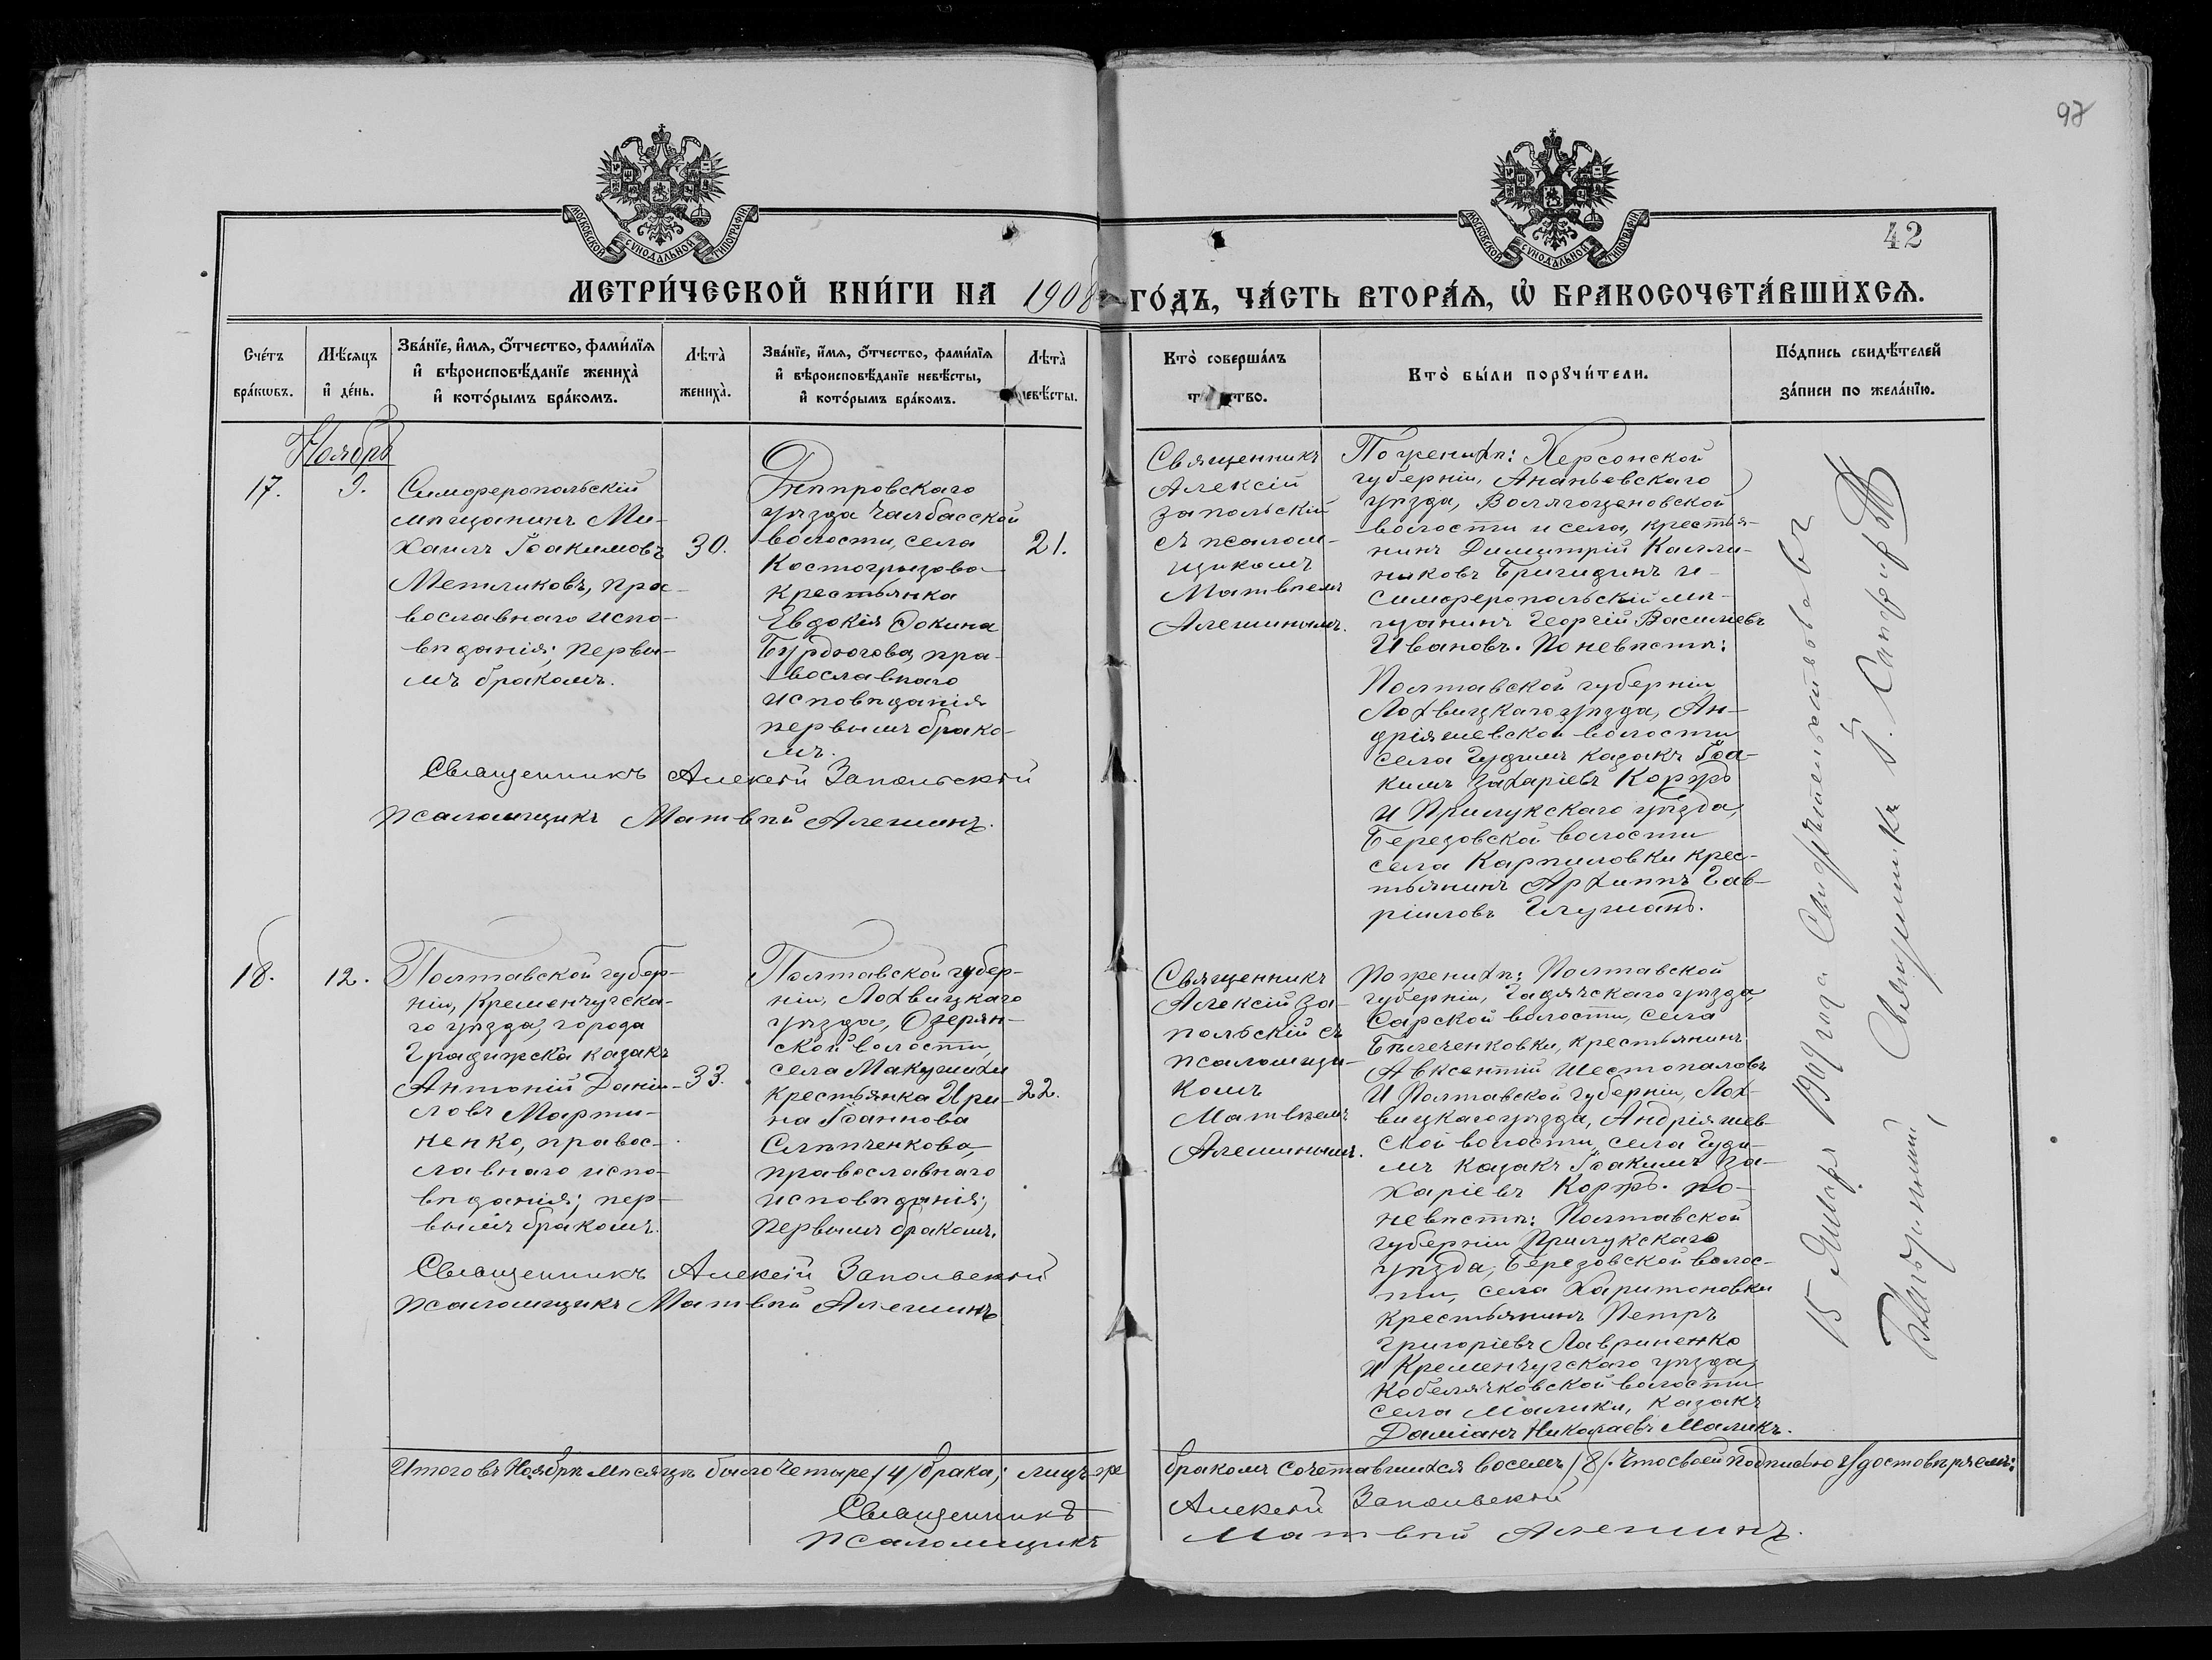 97
МОСКОВСКОЙ СУНОДАЛЬНОЙ ТИПОГРАФІИ
МОСКОВСКОЙ СУНОДАЛЬНОЙ ТИПОГРАФІИ
42
МЕТРИ́ЧЕСКОЙ КНИ́ГИ НА 1908 ГО́ДЪ, ЧА́СТЬ ВТОРА́Ѧ, Ѡ҆ БРАКОСОЧЕТА́ВШИХСѦ.
Сче́тъ
бра́кѡвъ.
Мѣ́сѧцъ
и҆ де́нь.
Зва́нїе, и҆́мѧ, ѻ҆́тчество, фами́лїѧ
и҆ вѣроисповѣ́данїе жениха̀
и҆ кото́рымъ бра́комъ.
Лѣта̀
жениха̀.
Зва́нїе, и҆́мѧ, ѻ҆́тчество, фами́лїѧ
и҆ вѣроисповѣ́данїе невѣ́сты,
и҆ кото́рымъ бра́комъ.
Лѣта̀
невѣ́сты.
Кто̀ соверша́лъ
Кто̀ бы́ли порꙋчи́тели.
По́дпись свидѣ́телей
за́писи по жела́нїю.
Ноябрь
17.
9.
Симферопольскій
мѣщанинъ Ми-
хаилъ Іоакимовъ
Метликовъ, пра-
вославнаго испо-
вѣданія; первы-
мъ бракомъ.
30.
Днѣпровскаго
уѣзда Чалбасской
волости, села
Костогрызова
крестьянка
Евдокія Фокина
Бурдюгова, пра-
вославнаго
исповѣданія
первымъ брако-
мъ.
21.
Священникъ
Алексій
Запольскій
съ псалом-
щикомъ
Матвѣемъ
Алешинымъ.
По женихѣ: Херсонской
губерніи, Ананьевскаго
уѣзда,
волости и села, крестья-
нинъ Димитрій Калли-
никовъ Бригидинъ и
симферопольскій мѣ-
щанинъ Георгій Васильевъ
Ивановъ. По невѣстѣ:
Полтавской губерніи
Лохвицкаго уѣзда, Ан-
дріяшевской волости
села Гудимъ казакъ Іоа-
кимъ Захаріевъ Коржъ
и Прилукскаго уѣзда,
Березовской волости
села Карпиловки крес-
тьянинъ Архиппъ Гав-
ріиловъ
Священникъ Алексій Запольскій
Псаломщикъ Матвѣй Алешинъ.
18.
12.
Полтавской губер-
ніи, Кременчугска-
го уѣзда, города
Градижска казакъ
Антоній Даніи-
ловъ Марти-
ненко, правос-
лавнаго испо-
вѣданія; пер-
вымъ бракомъ.
33.
Полтавской губер-
ніи, Лохвицкаго
уѣзда, Озерян-
ской волости,
села Макушихи
крестьянка Ири-
на Іоаннова
Слѣпченкова,
православнаго
исповѣданія;
первымъ бракомъ.
22.
Священникъ
Алексій За-
польскій съ
псаломщи-
комъ
Матвѣемъ
Алешинымъ.
По женихѣ: Полтавской
губерніи, Гадячскаго уѣзда
Сарской волости, села
Бѣлеченковки, крестьянинъ
Авксентій Шестопаловъ
и Полтавской губерніи, Лох-
вицкаго уѣзда, Андріяшев-
ской волости, села Гуди-
мъ казакъ Іоакимъ За-
харіевъ Коржъ. По
невѣстѣ: Полтавской
губерніи Прилукскаго
уѣзда, Березовской волос-
ти, села Харитоновки
крестьянинъ Петръ
Григоріевъ Лавриненко
и Кременчугскаго уѣзда,
Кобелячковской волости
села Малики, казакъ
Даміанъ Николаевъ Маликъ.
Священникъ Алексій Запольскій
Псаломщикъ Матвѣй Алешинъ
15 Января 1909 года Свидѣтельствовалъ
Благочинный, Священникъ
Итого въ Ноябрѣ мѣсяцѣ было четыре /4/ брака; лицъ же бракомъ сочетавшихся восемь /8/. Что своею подписью и удостовѣряемъ:
Священникъ Алексій Запольскій
Псаломщикъ Матвѣй Алешинъ.